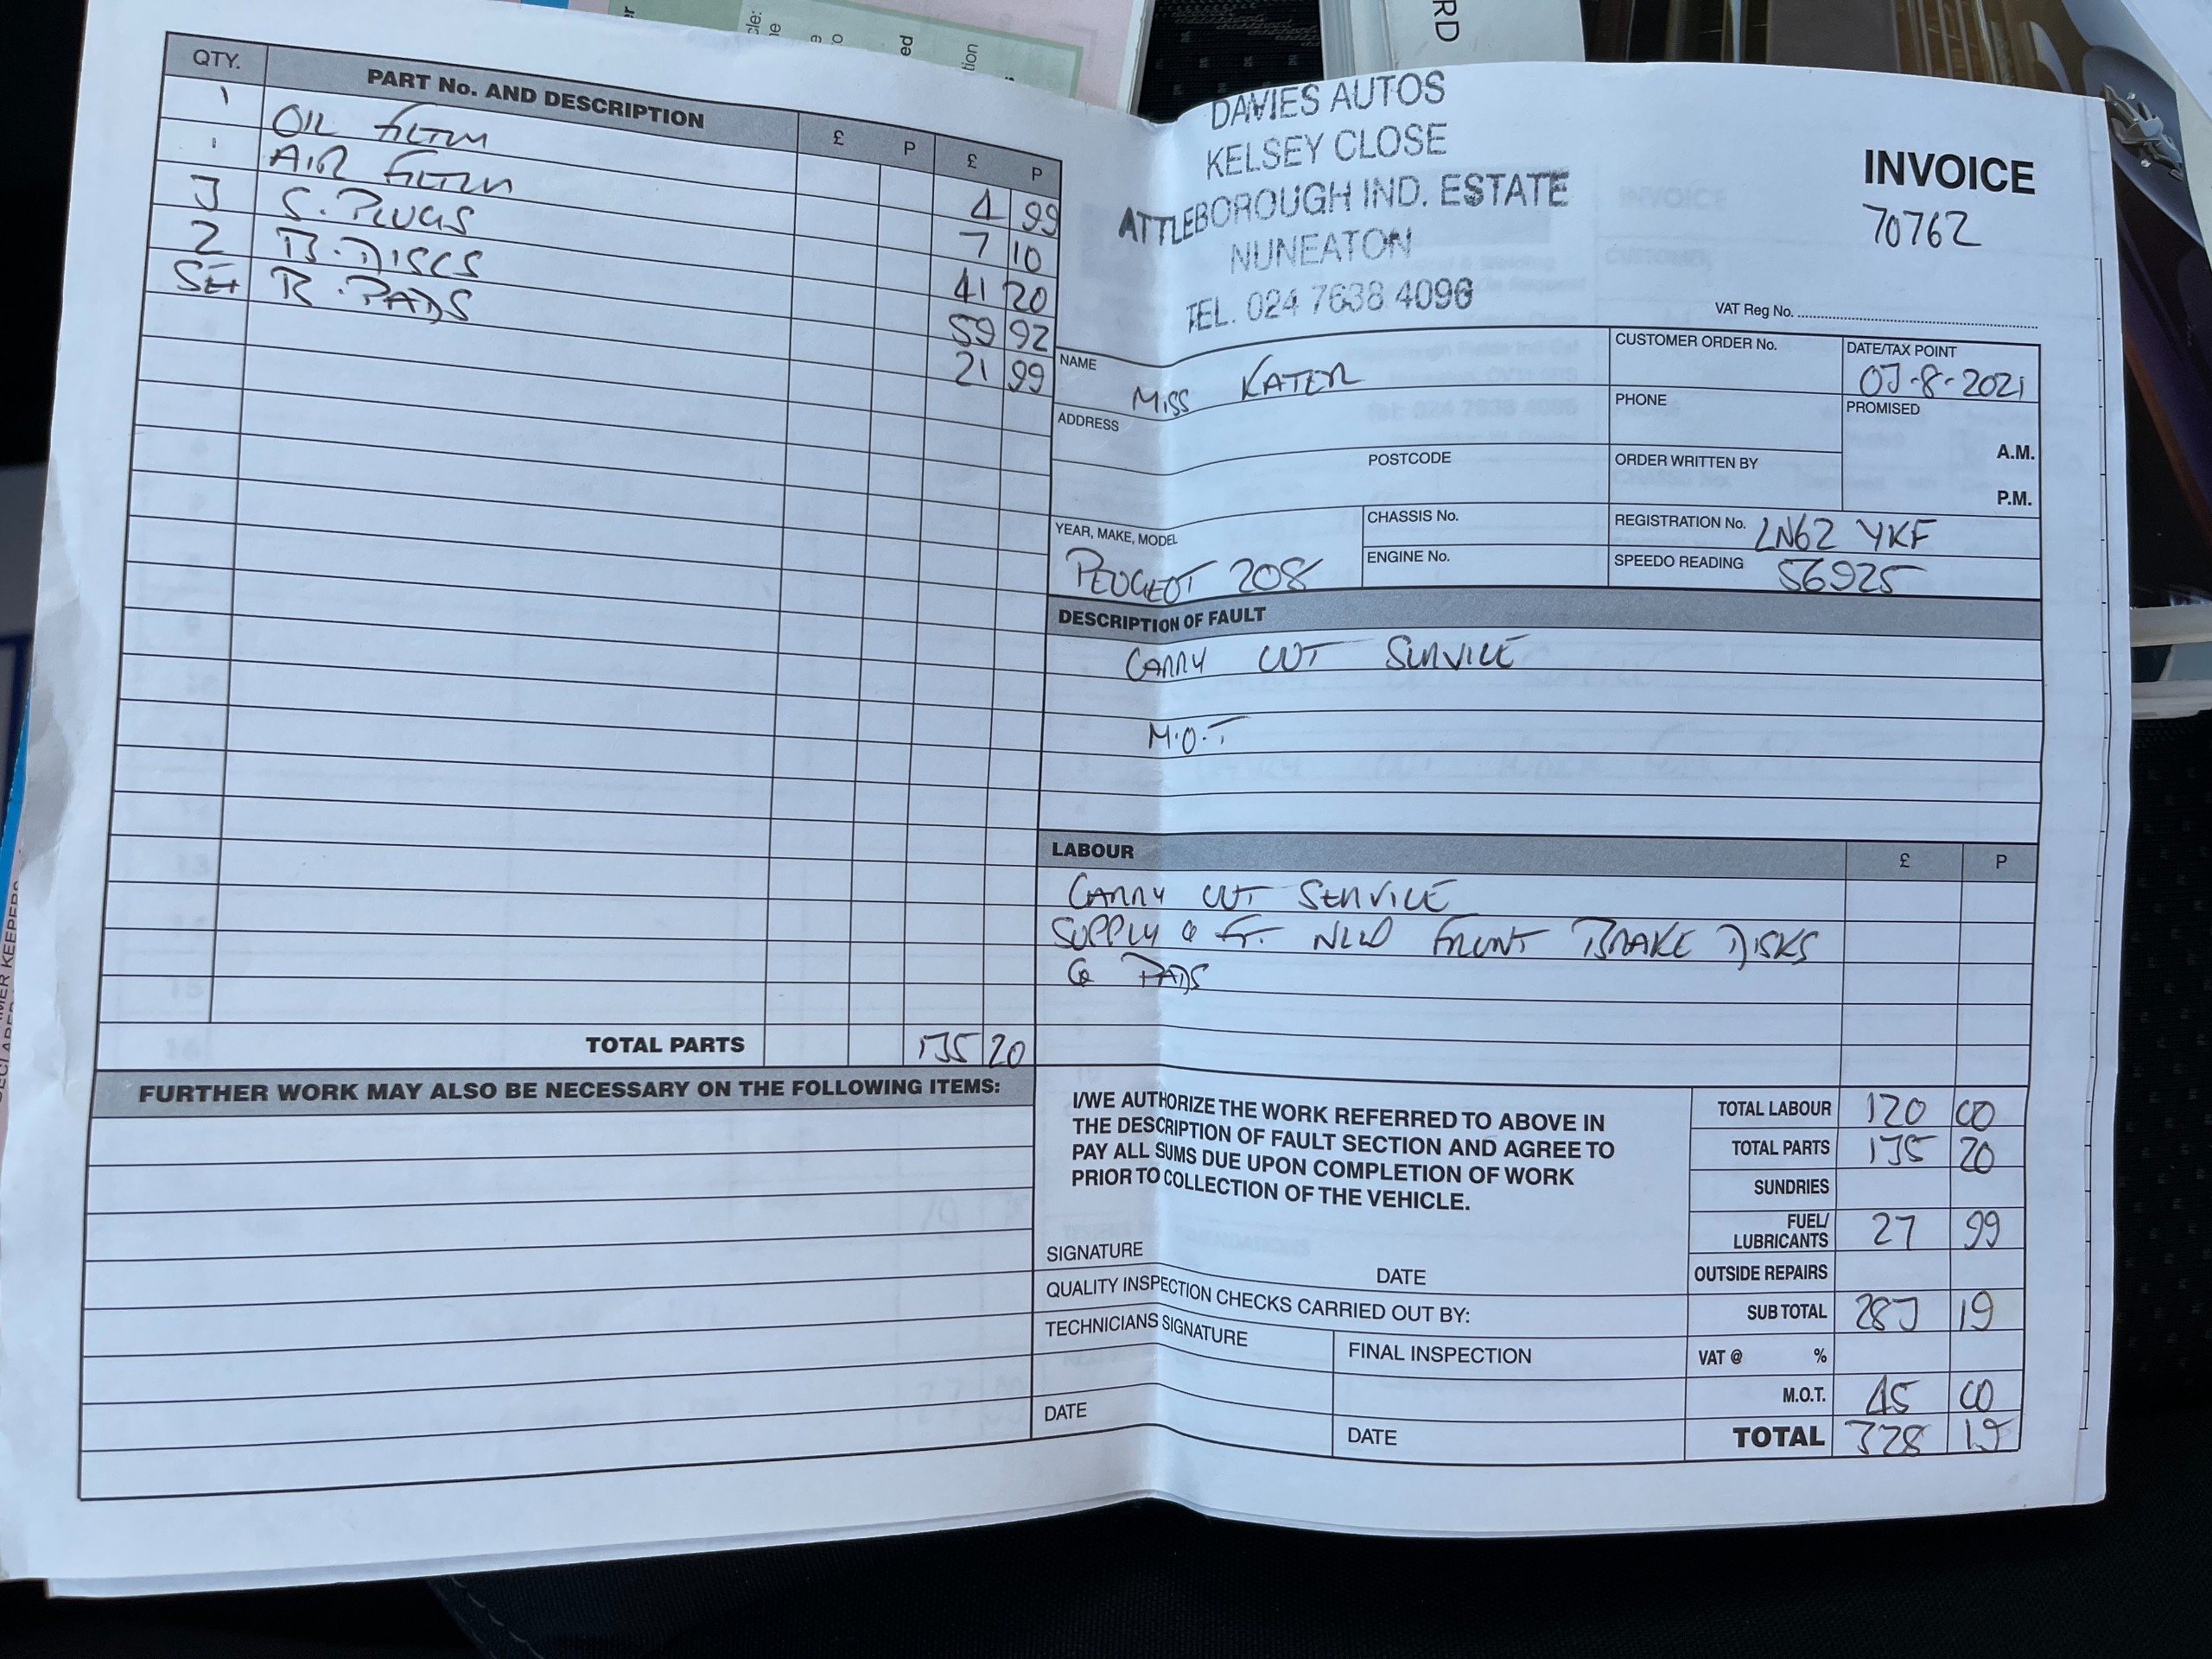 QTY. PART No. AND DESCRIPTION £ P £ P
1 OIL FILTER 4 99
1 AIR FILTER 7 10
3 S. PLUGS 41 20
2 B. DISCS 59 92
SET B. PADS 21 99
TOTAL PARTS 135 20
FURTHER WORK MAY ALSO BE NECESSARY ON THE FOLLOWING ITEMS:
DAVIES AUTOS
KELSEY CLOSE
ATTLEBOROUGH IND. ESTATE
NUNEATON
TEL. 024 7638 4096
INVOICE
70762
VAT Reg No.
NAME MISS KATER
CUSTOMER ORDER No.
DATE/TAX POINT
03-8-2021
ADDRESS
PHONE
PROMISED
A.M.
P.M.
POSTCODE
ORDER WRITTEN BY
YEAR, MAKE, MODEL
PEUGEOT 208
CHASSIS No.
ENGINE No.
REGISTRATION No. LN62 YKF
SPEEDO READING 56925
DESCRIPTION OF FAULT
CARRY OUT SERVICE
M.O.T
LABOUR £ P
CARRY OUT SERVICE
SUPPLY & FIT NEW FRONT BRAKE DISKS
& PADS
I/WE AUTHORIZE THE WORK REFERRED TO ABOVE IN
THE DESCRIPTION OF FAULT SECTION AND AGREE TO
PAY ALL SUMS DUE UPON COMPLETION OF WORK
PRIOR TO COLLECTION OF THE VEHICLE.
SIGNATURE DATE
QUALITY INSPECTION CHECKS CARRIED OUT BY:
TECHNICIANS SIGNATURE
FINAL INSPECTION
DATE
DATE
TOTAL LABOUR 120 00
TOTAL PARTS 135 20
SUNDRIES
FUEL/
LUBRICANTS 27 99
OUTSIDE REPAIRS
SUB TOTAL 283 19
VAT @ %
M.O.T. 45 00
TOTAL 328 19